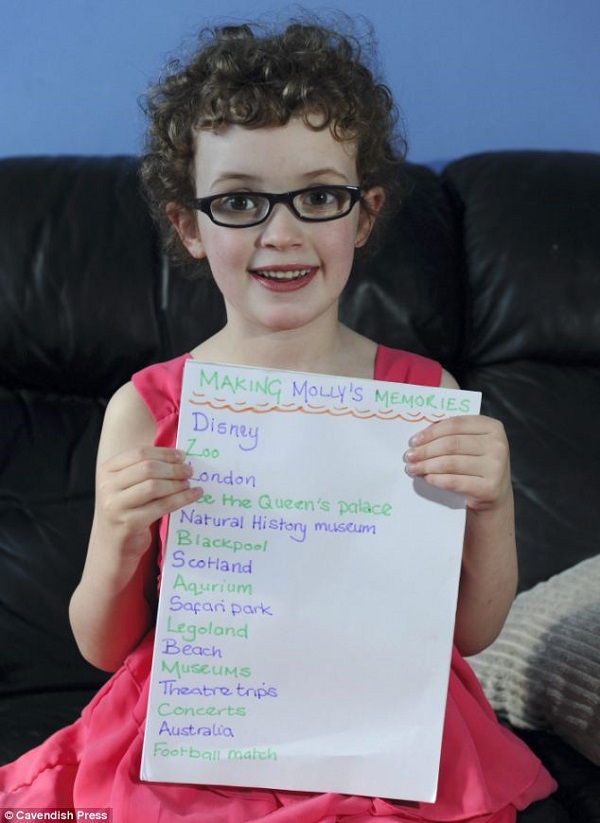 MAKING MOLLY'S MEMORIES
Disney
Zoo
London
ee the Queen's palace
Natural History museum
Blackpool
Scotland
Aqurium
Safari park
Legoland
Beach
Museums
Theatre trips
Concerts
Australia
Football match
© Cavendish Press